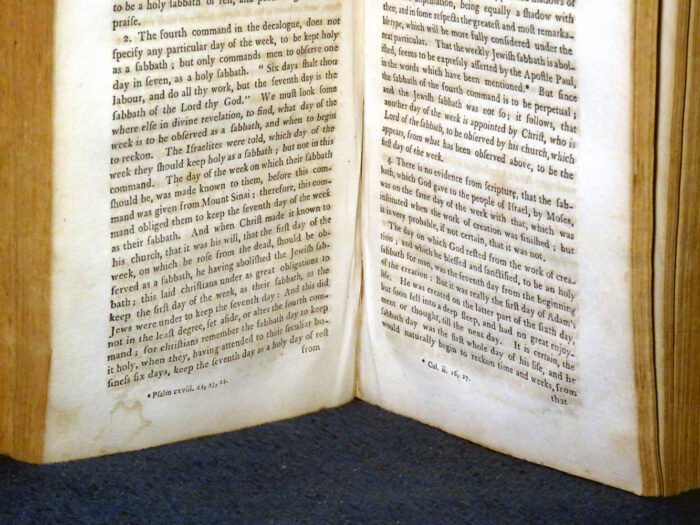 to be a holy ſabbath of reſt, and
praiſe.
2. The fourth command in the decalogue, does not
ſpecify any particular day of the week, to be kept holy
as a ſabbath; but only commands men to obſerve one
day in ſeven, as a holy ſabbath. "Six days ſhalt thou
labour, and do all thy work, but the ſeventh day is the
ſabbath of the Lord thy God." We muſt look ſome
where elſe in divine revelation, to find, what day of the
week is to be obſerved as a ſabbath, and when to begin
to reckon. The Iſraelites were told, which day of the
week they ſhould keep holy as a ſabbath; but not in this
command. The day of the week on which their ſabbath
ſhould be, was made known to them, before this com-
mand was given from Mount Sinai; therefore, this com-
mand obliged them to keep the ſeventh day of the week
as their ſabbath. And when Chriſt made it known to
his church, that it was his will, that the firſt day of the
week, on which he roſe from the dead, ſhould be ob-
ſerved as a ſabbath, he having aboliſhed the Jewiſh ſab-
bath; this laid chriſtians under as great obligations to
keep the firſt day of the week, as their ſabbath, as the
Jews were under to keep the ſeventh day: And this did
not in the leaſt degree, ſet aſide, or alter the fourth com-
mand; for chriſtians remember the ſabbath day to keep
it holy, when they, having attended to their ſecular bu-
ſineſs ſix days, keep the ſeventh day as a holy day of reſt
from
* Pſalm cxviii, 22, 23, 24.
being equally a ſhadow with
then, and in ſome reſpects the greateſt and moſt remarka-
ble type, which will be more fully conſidered under the
next particular. That the weekly Jewiſh ſabbath is aboli-
ſhed, ſeems to be expreſsly aſſerted by the Apoſtle Paul,
in the words which have been mentioned.* But ſince
the ſabbath of the fourth command is to be perpetual;
and the Jewiſh ſabbath was not ſo; it follows, that
another day of the week is appointed by Chriſt, who is
Lord of the ſabbath, to be obſerved by his church, which
appears, from what has been obſerved above, to be the
firſt day of the week.
4. There is no evidence from ſcripture, that the ſab-
bath, which God gave to the people of Iſrael, by Moſes,
was on the ſame day of the week with that, which was
inſtituted when the work of creation was finiſhed; but
it is very probable, if not certain, that it was not.
The day on which God reſted from the work of crea-
tion; and which he bleſſed and ſanctified, to be an holy
ſabbath for man, was the ſeventh day from the beginning
of the creation: But it was really the firſt day of Adam's
life. He was created on the latter part of the ſixth day,
but ſoon fell into a deep ſleep, and had no great enjoy-
ment or thought, till the next day. It is certain, the
ſabbath day was the firſt whole day of his life, and he
would naturally begin to reckon time and weeks, from
that
* Col. ii. 16, 17.